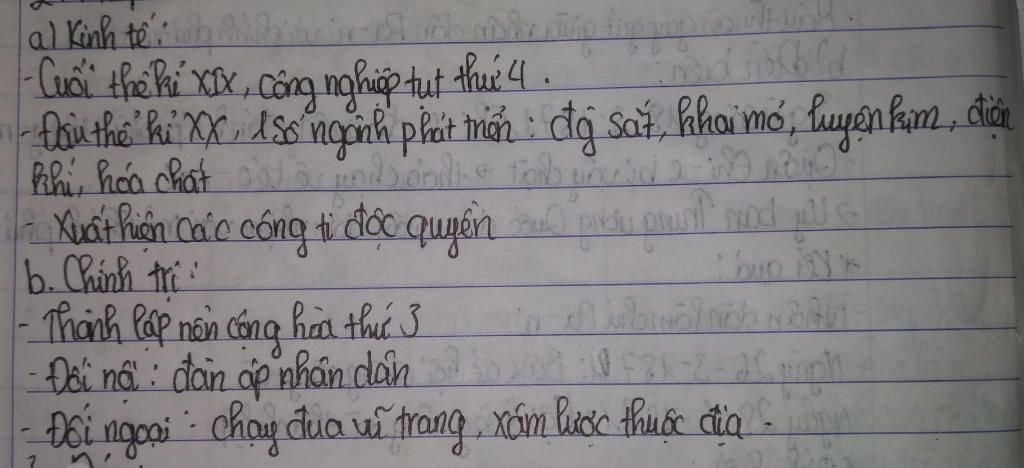 a) Kinh tế:
- Cuối thế kỉ XIX, công nghiệp tụt thứ 4.
- Đầu thế kỉ XX, 1 số ngành phát triển: đg sắt, khai mỏ, luyện kim, điện
khí, hóa chất
Xuất hiện các công ti độc quyền
b. Chính trị:
- Thành lập nền cộng hòa thứ 3
- Đối nội: đàn áp nhân dân
- Đối ngoại: chạy đua vũ trang, xâm lược thuộc địa.